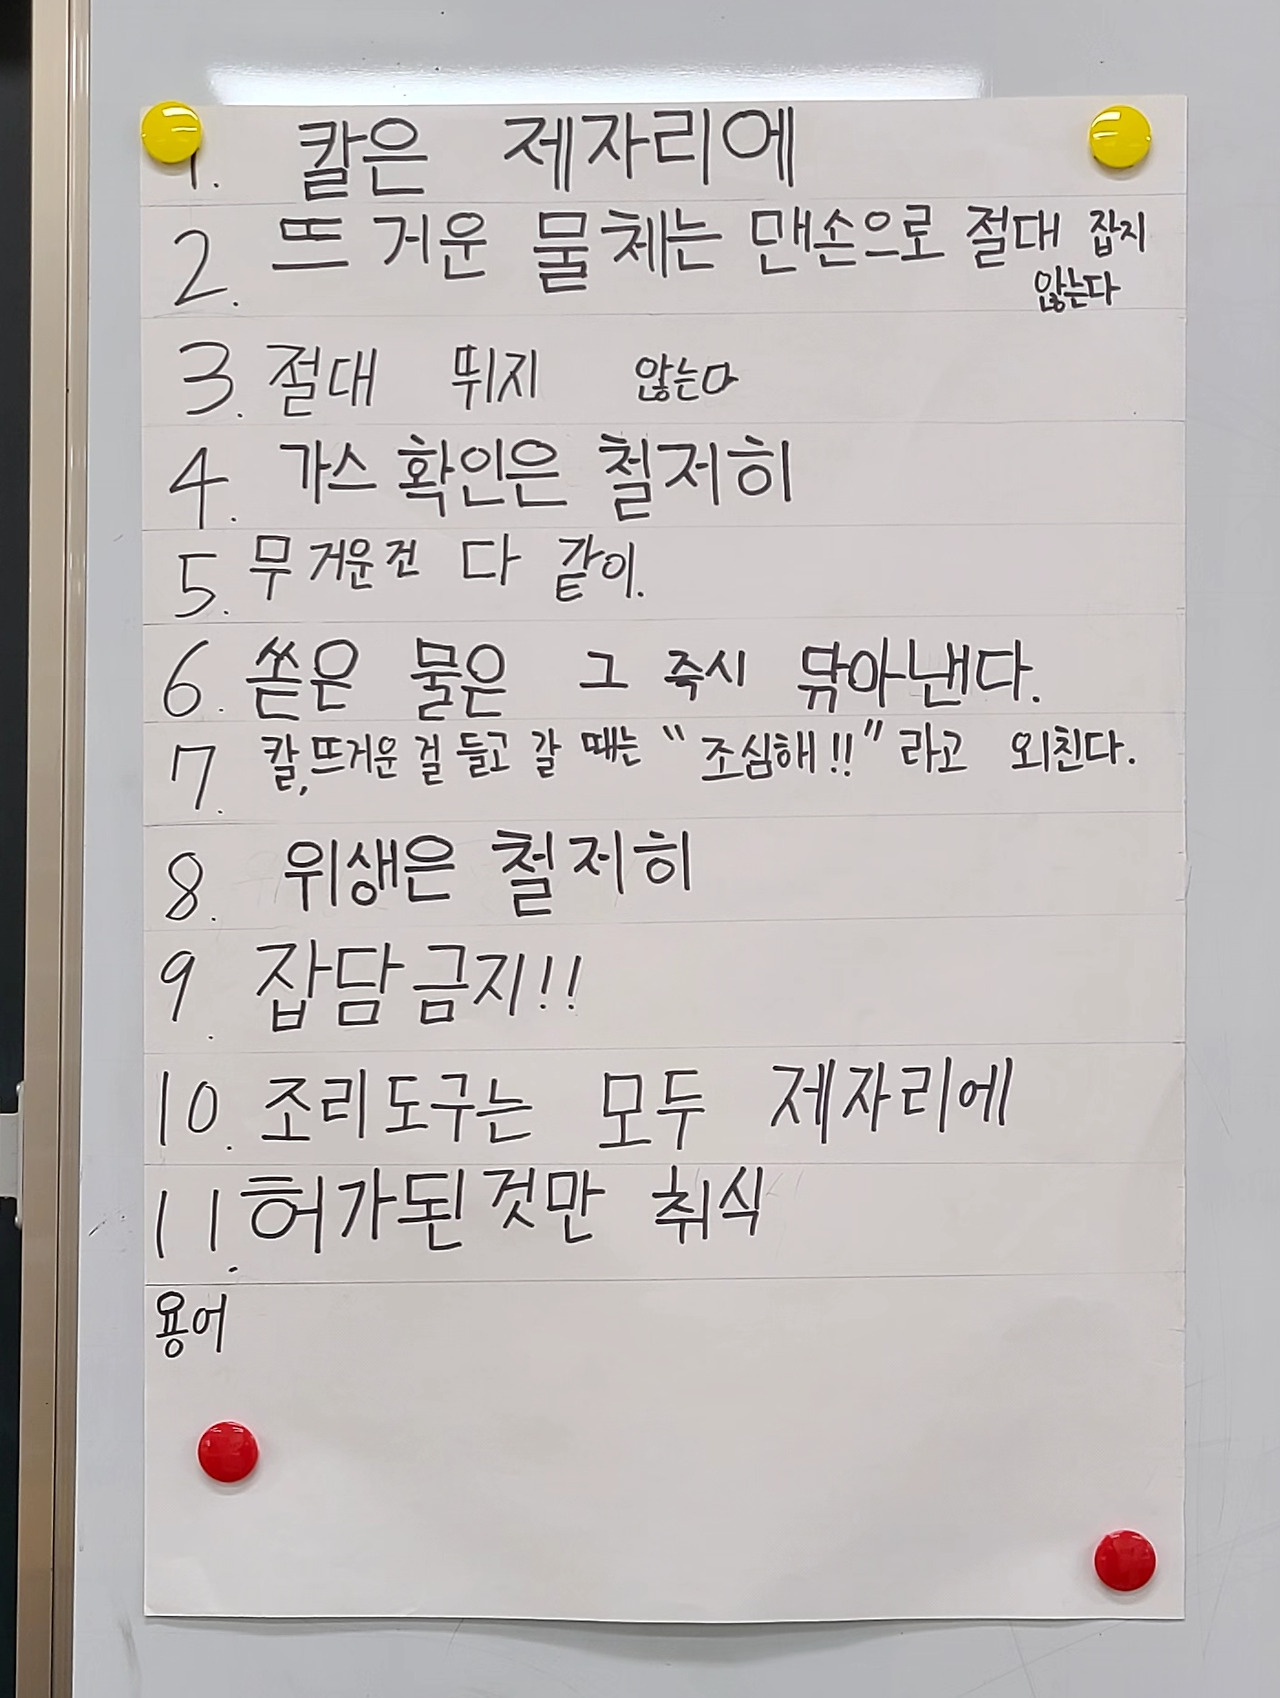 1. 칼은 제자리에
2. 뜨거운 물체는 맨손으로 절대 잡지
않는다
3. 절대 뛰지 않는다
4. 가스 확인은 철저히
5. 무거운건 다 같이.
6. 쏟은 물은 그 즉시 닦아낸다.
7. 칼, 뜨거운 걸 들고 갈 때는 "조심해!!" 라고 외친다.
8. 위생은 철저히
9. 잡담금지!!
10. 조리도구는 모두 제자리에
11. 허가된것만 취식
용어